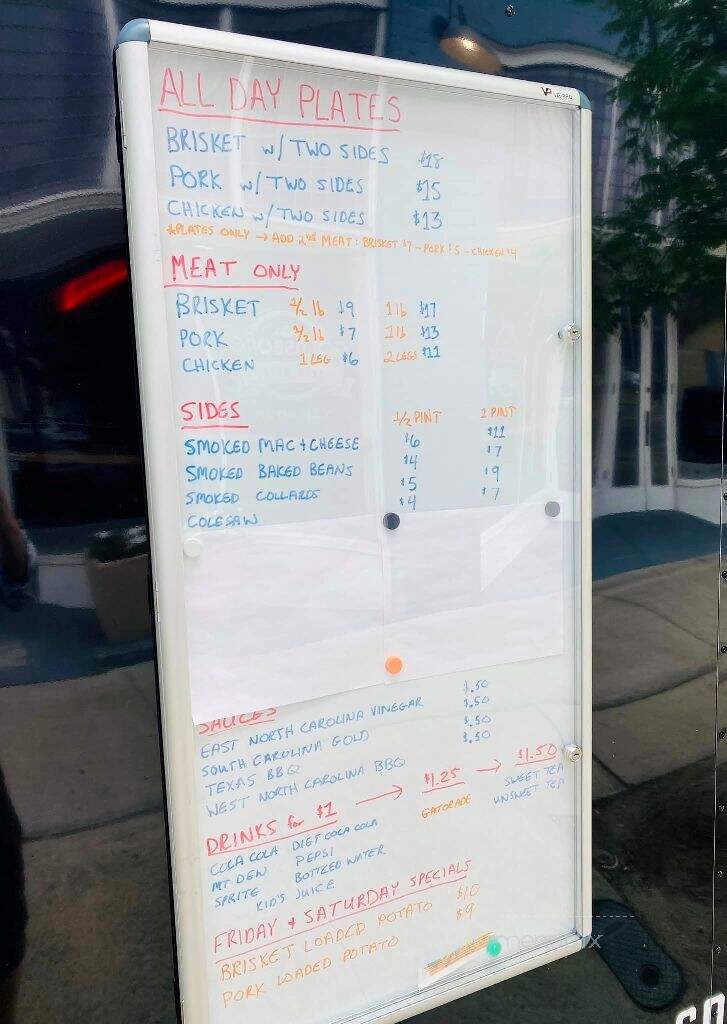 ALL DAY PLATES
BRISKET w/ TWO SIDES $18
PORK w/ TWO SIDES $15
CHICKEN w/ TWO SIDES $13
*PLATES ONLY → ADD 2nd MEAT: BRISKET $7 - PORK $5 - CHICKEN $4
MEAT ONLY
BRISKET 1/2 lb $9 1 lb $17
PORK 1/2 lb $7 1 lb $13
CHICKEN 1 LEG $6 2 LEGS $11
SIDES 1/2 PINT 1 PINT
SMOKED MAC + CHEESE $6 $11
SMOKED BAKED BEANS $4 $7
SMOKED COLLARDS $5 $9
COLESAW $4 $7
SAUCES
EAST NORTH CAROLINA VINEGAR $.50
SOUTH CAROLINA GOLD $.50
TEXAS BBQ $.50
WEST NORTH CAROLINA BBQ $.50
DRINKS for $1 → $1.25 → $1.50
COLA COLA DIET COCA COLA GATORADE SWEET TEA
MT DEW PEPSI UNSWEET TEA
SPRITE BOTTLED WATER
KID'S JUICE
FRIDAY + SATURDAY SPECIALS
BRISKET LOADED POTATO $10
PORK LOADED POTATO $9